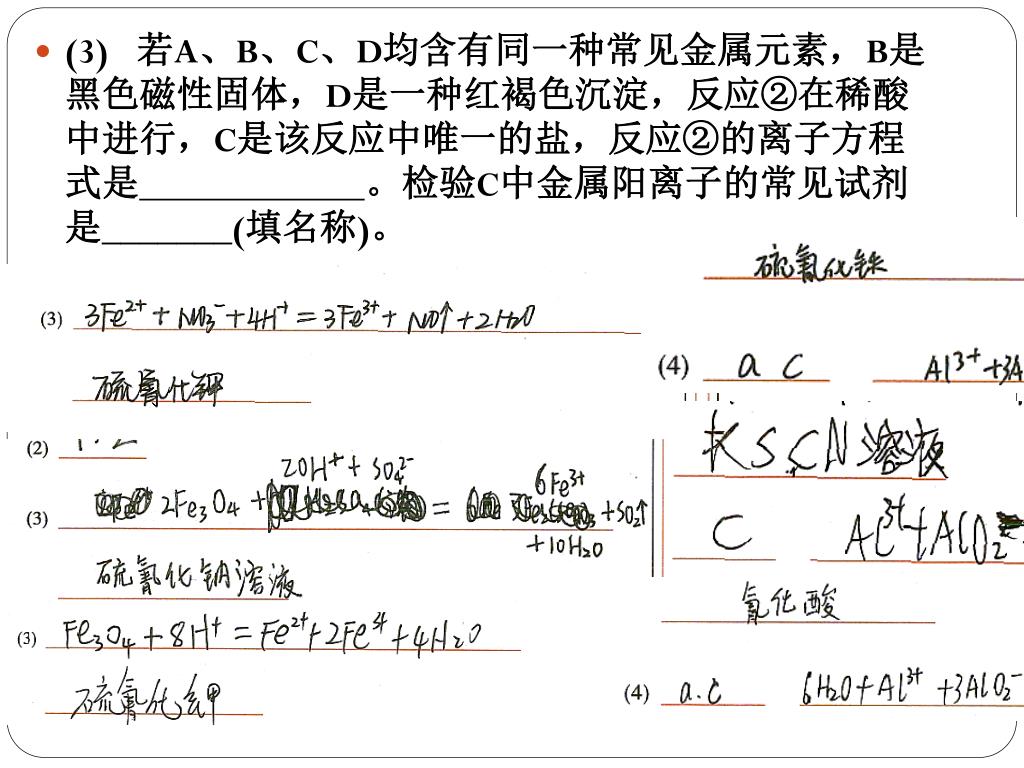 (3) 若A、B、C、D均含有同一种常见金属元素，B是
黑色磁性固体，D是一种红褐色沉淀，反应②在稀酸
中进行，C是该反应中唯一的盐，反应②的离子方程
式是____________。检验C中金属阳离子的常见试剂
是_______(填名称)。
硫氰化铁
(3) 3Fe²⁺+NO₃⁻+4H⁺=3Fe³⁺+NO↑+2H₂O
硫氰化钾
(4) a c Al³⁺+3A
KSCN溶液
C Al³⁺+AlO₂
(2)
20H⁺+SO₄²⁻ 6Fe³⁺
(3) 2Fe₃O₄+ = +SO₂↑
+10H₂O
硫氰化钠溶液
氰化酸
(3) Fe₃O₄+8H⁺=Fe²⁺+2Fe³⁺+4H₂O
硫氰化钾
(4) a.c 6H₂O+Al³⁺+3AlO₂⁻